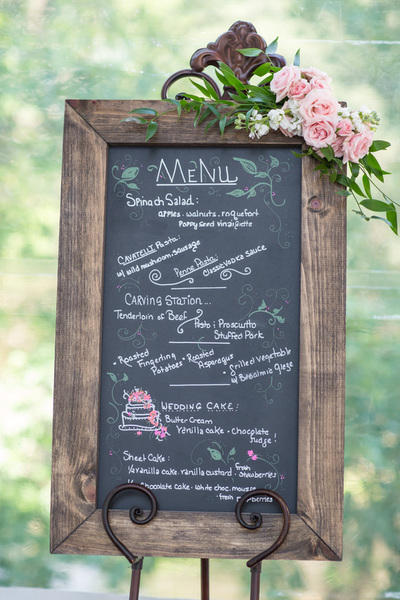 MENU
Spinach Salad:
apples · walnuts · roquefort
Poppy seed vinaigette
CAVATELLI Pasta:
w/ wild mushroom, sausage
Penne Pasta:
Classic Vodka Sauce
CARVING STATION...
Tenderloin of Beef
Pesto & Prosciutto
Stuffed Pork
• Roasted Fingerling Potatoes
• Roasted Asparagus
• Grilled Vegetable
w/ Balsamic Glaze
WEDDING CAKE:
Butter Cream
Vanilla Cake · Chocolate
fudge!
Sheet Cake:
½ Vanilla cake, vanilla custard · fresh
strawberries
½ Chocolate cake · white choc. mousse
· fresh